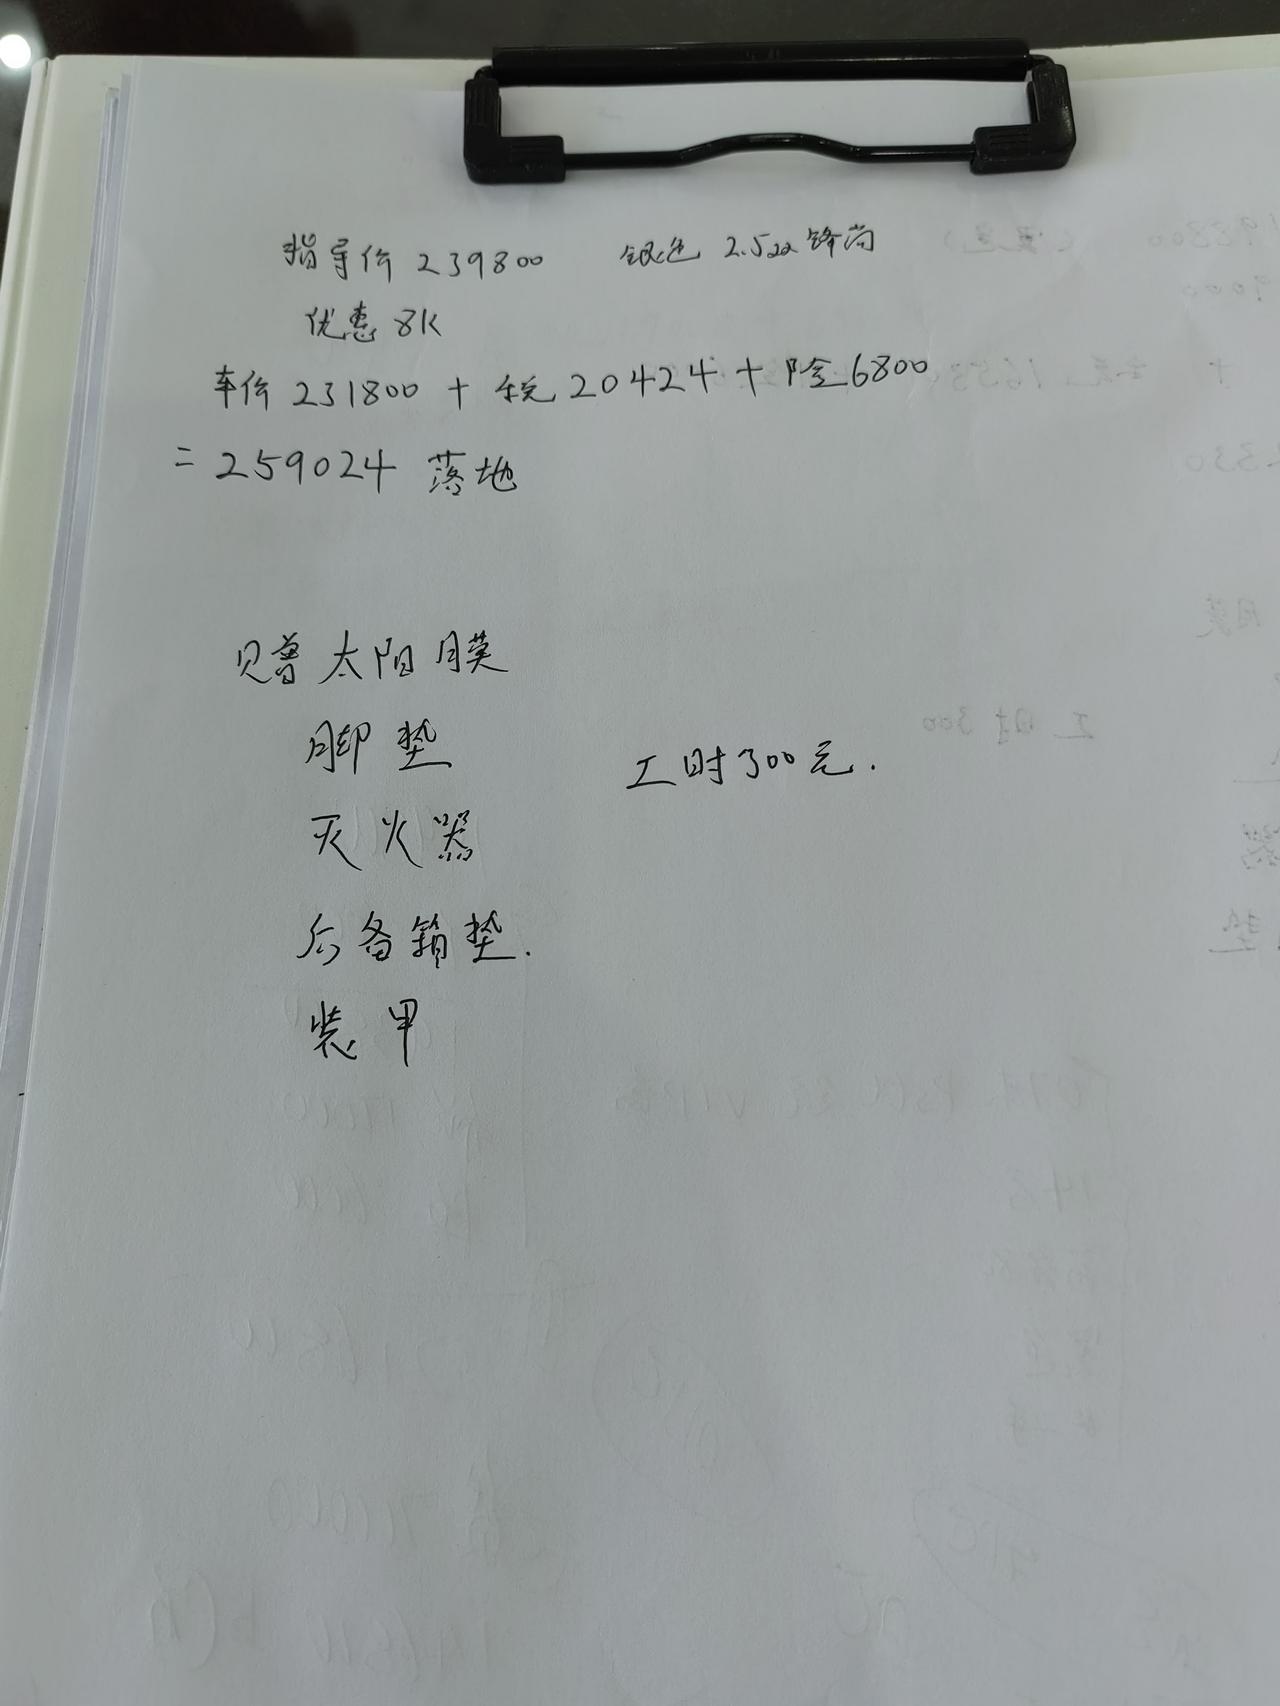 指导价 239800 银色 2.5 锋尚
优惠 8K
车价 231800 + 税 20424 + 险 6800
= 259024 落地
赠 太阳膜
脚垫
工时 300 元.
灭火器
后备箱垫.
装甲